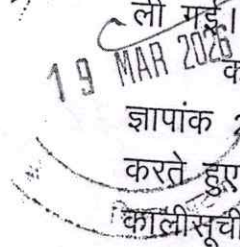 ली गई।
19 MAR 2026
क
ज्ञापांक
करते हुए
कालीसूची